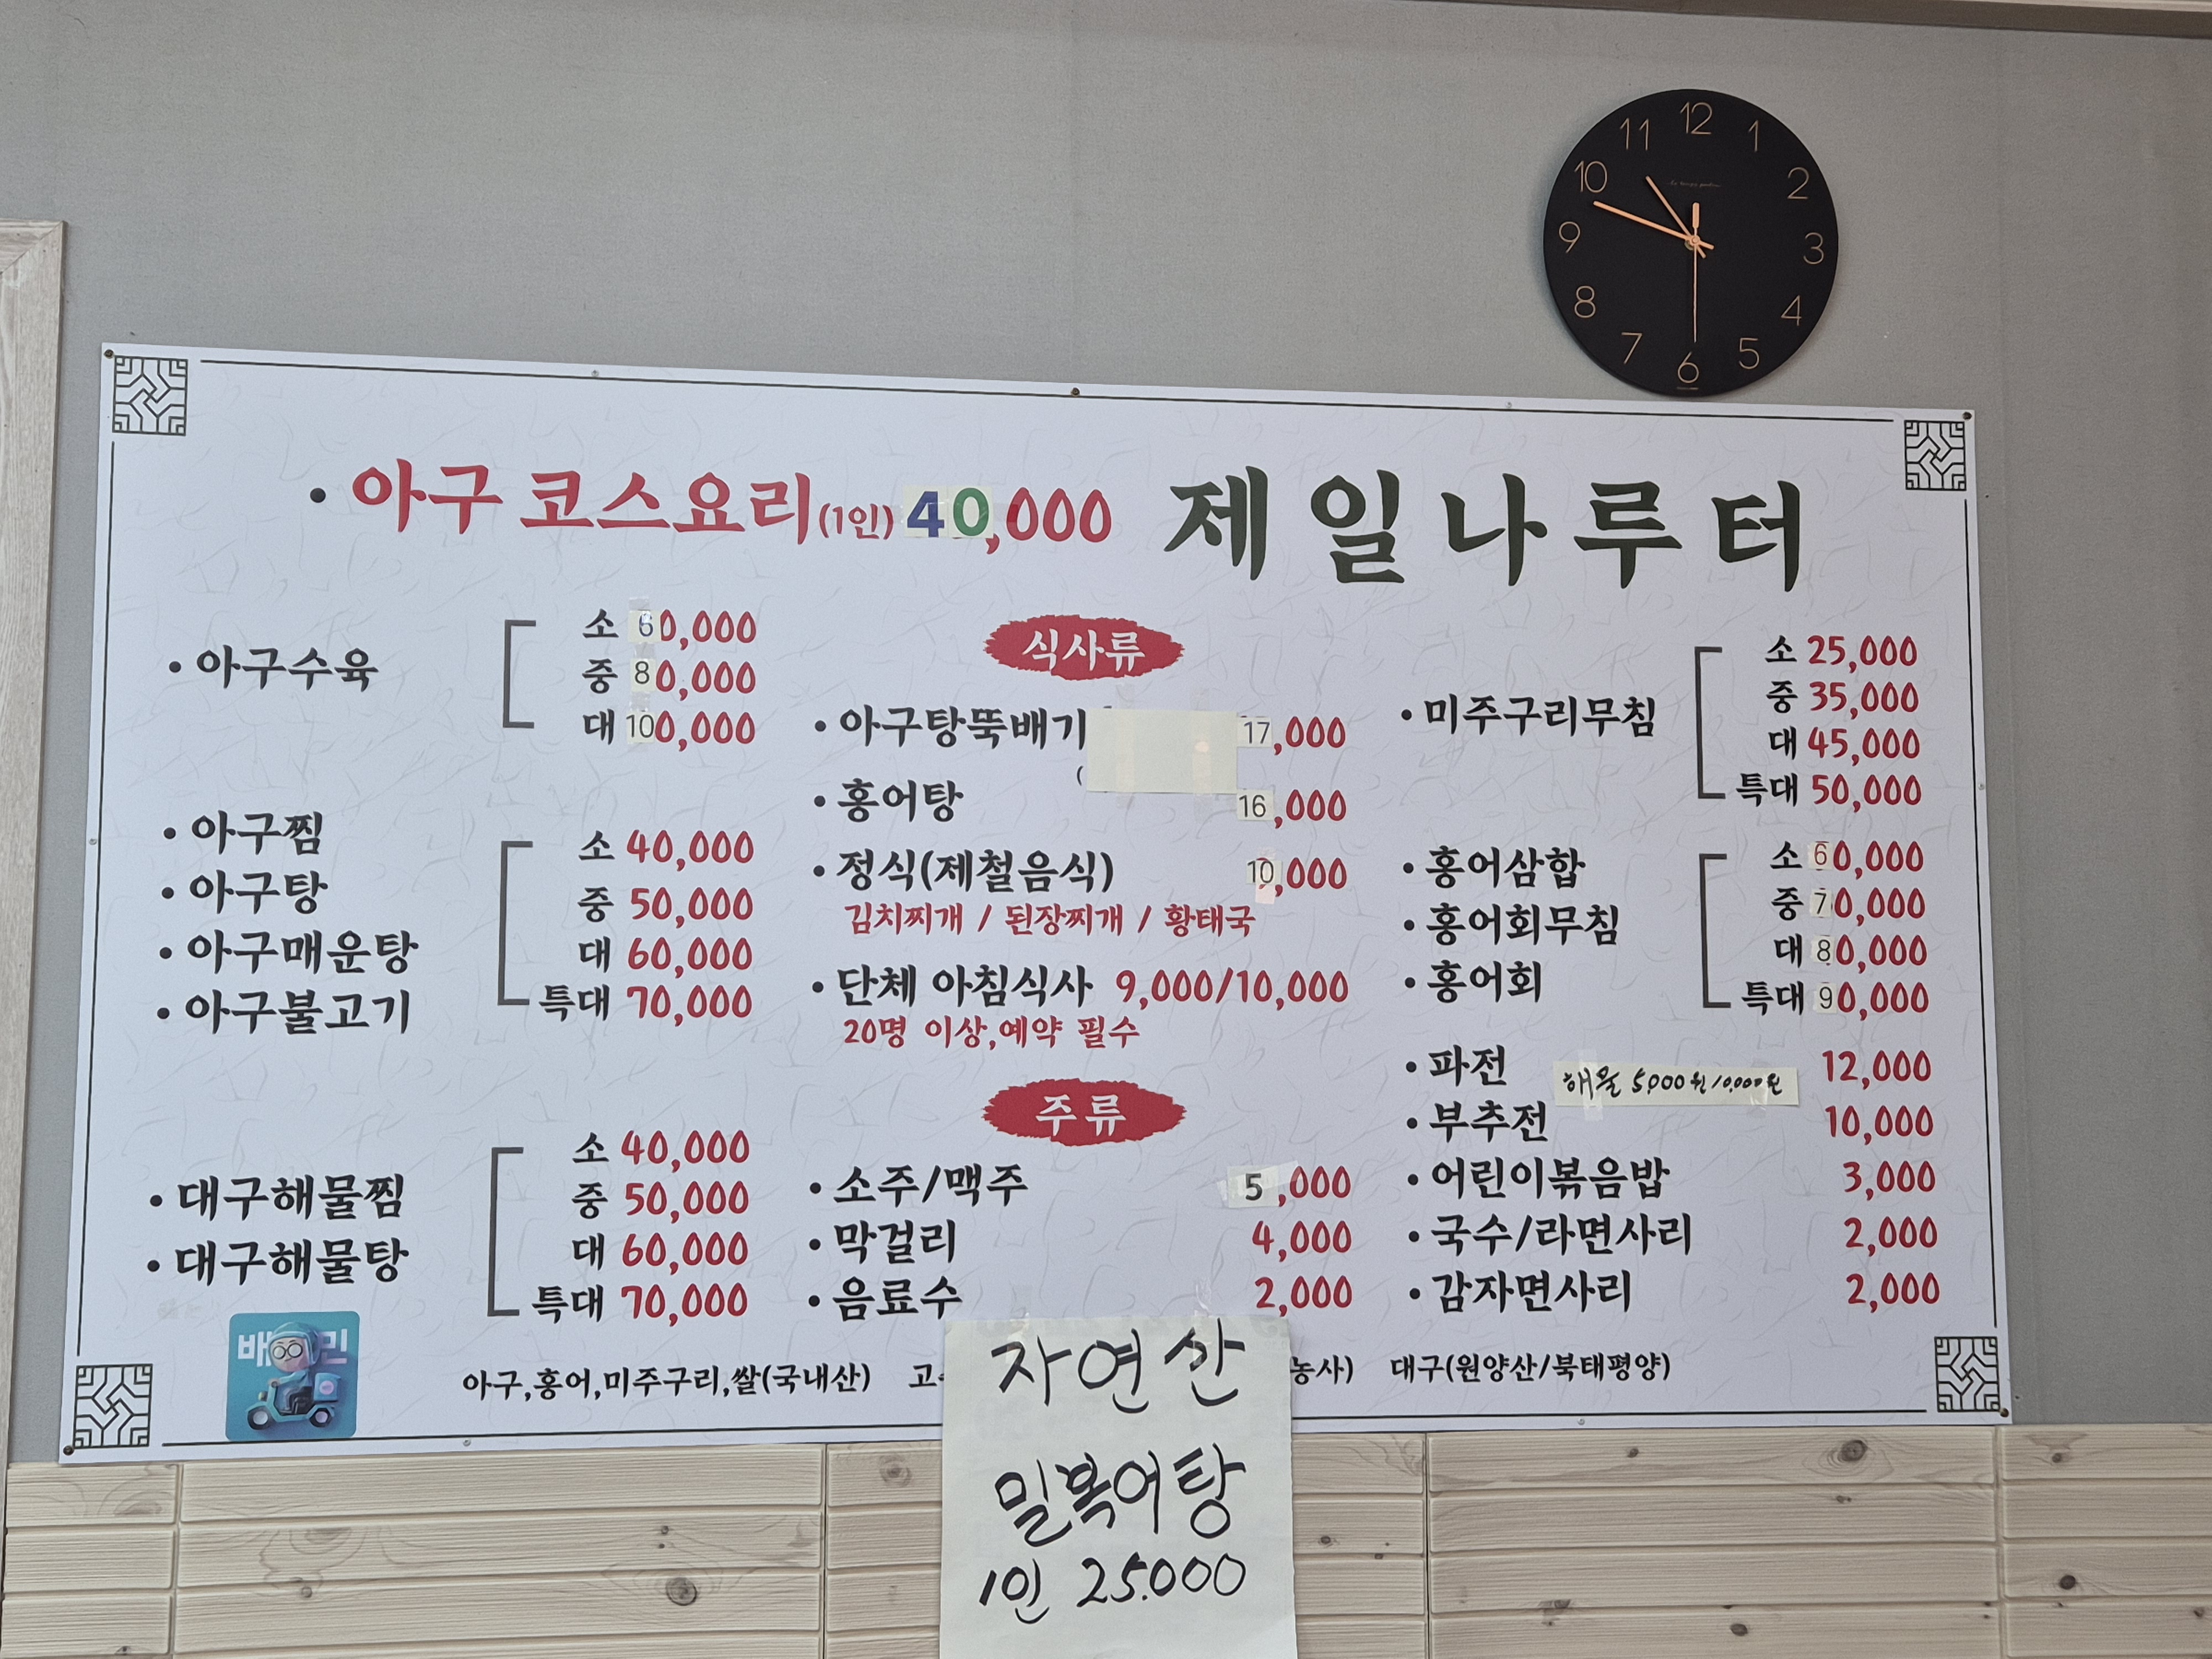 12
1
2
3
4
5
6
7
8
9
10
11
• 아구 코스요리(1인) 40,000
제일나루터
• 아구수육
소 60,000
중 80,000
대 100,000
• 아구찜
• 아구탕
• 아구매운탕
• 아구불고기
소 40,000
중 50,000
대 60,000
특대 70,000
• 대구해물찜
• 대구해물탕
소 40,000
중 50,000
대 60,000
특대 70,000
식사류
• 아구탕뚝배기 17,000
• 홍어탕 16,000
• 정식(제철음식) 10,000
김치찌개 / 된장찌개 / 황태국
• 단체 아침식사 9,000/10,000
20명 이상,예약 필수
주류
• 소주/맥주 5,000
• 막걸리 4,000
• 음료수 2,000
• 미주구리무침
소 25,000
중 35,000
대 45,000
특대 50,000
• 홍어삼합
• 홍어회무침
• 홍어회
소 60,000
중 70,000
대 80,000
특대 90,000
• 파전 12,000
해물 5,000원/10,000원
• 부추전 10,000
• 어린이볶음밥 3,000
• 국수/라면사리 2,000
• 감자면사리 2,000
아구,홍어,미주구리,쌀(국내산) 농사) 대구(원양산/북태평양)
자연산
밀복어탕
1인 25.000